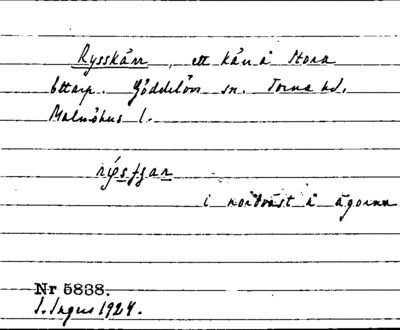 Rysskärr, ett kärr å Stora
Ettarp. Gödelövs sn. Torna hd.
Malmöhus l.
i nordväst å ägorna
Nr 5838.
I. Ingers 1924.